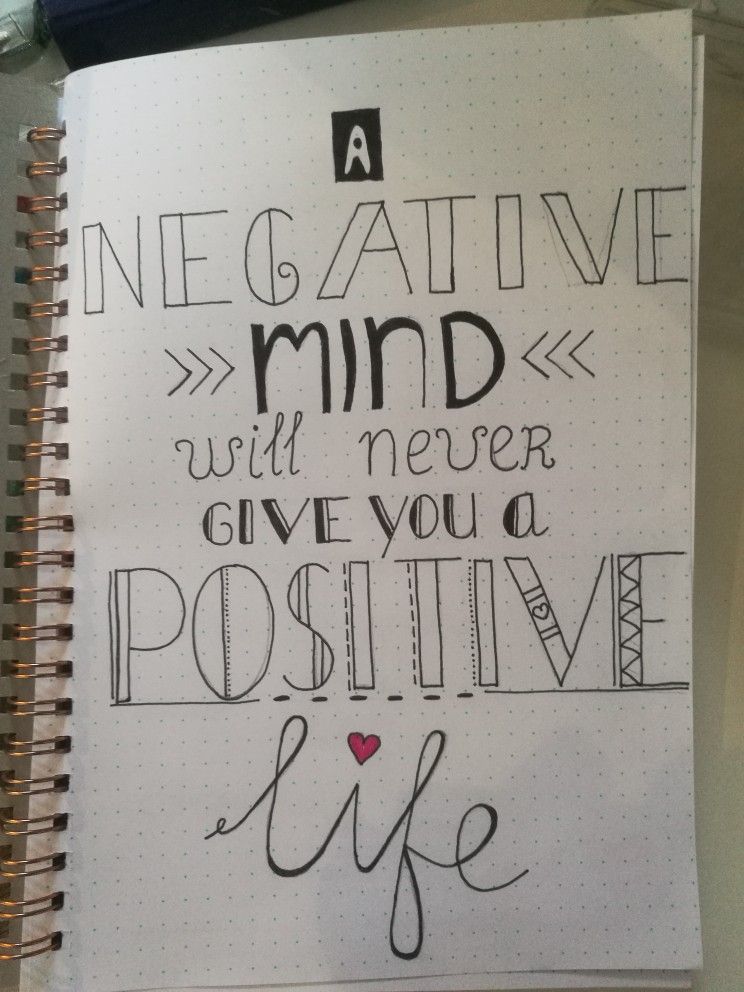 A
NEGATIVE
MIND
will never
GIVE YOU A
POSITIVE
life